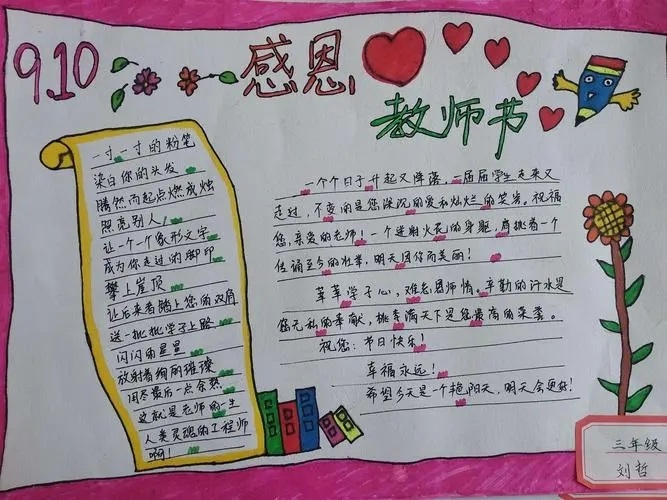 9.10
感恩
教师节
一寸一寸的粉笔
染白你的头发
腾然而起点燃成烛
照亮别人,
让一个个象形文字
成为你走过的脚印
攀上崖顶
让后来者踏上您的双肩
送一批批学子上路
闪闪的星星
放射着绚丽璀璨
用尽最后一点余热
这就是老师的一生
人类灵魂的工程师
啊!
一个个日子升起又降落,一届届学生走来又
走过,不变的是您深沉的爱和灿烂的笑容。祝福
您,亲爱的老师!一个迸射火花的身躯,肩挑着一个
传诵至今的壮举,明天因你而美丽!
莘莘学子心,难忘恩师情。辛勤的汗水是
您无私的奉献,桃李满天下是您最高的荣誉。
祝您:节日快乐!
幸福永远!
希望今天是一个艳阳天,明天会更好!
三年级
刘哲